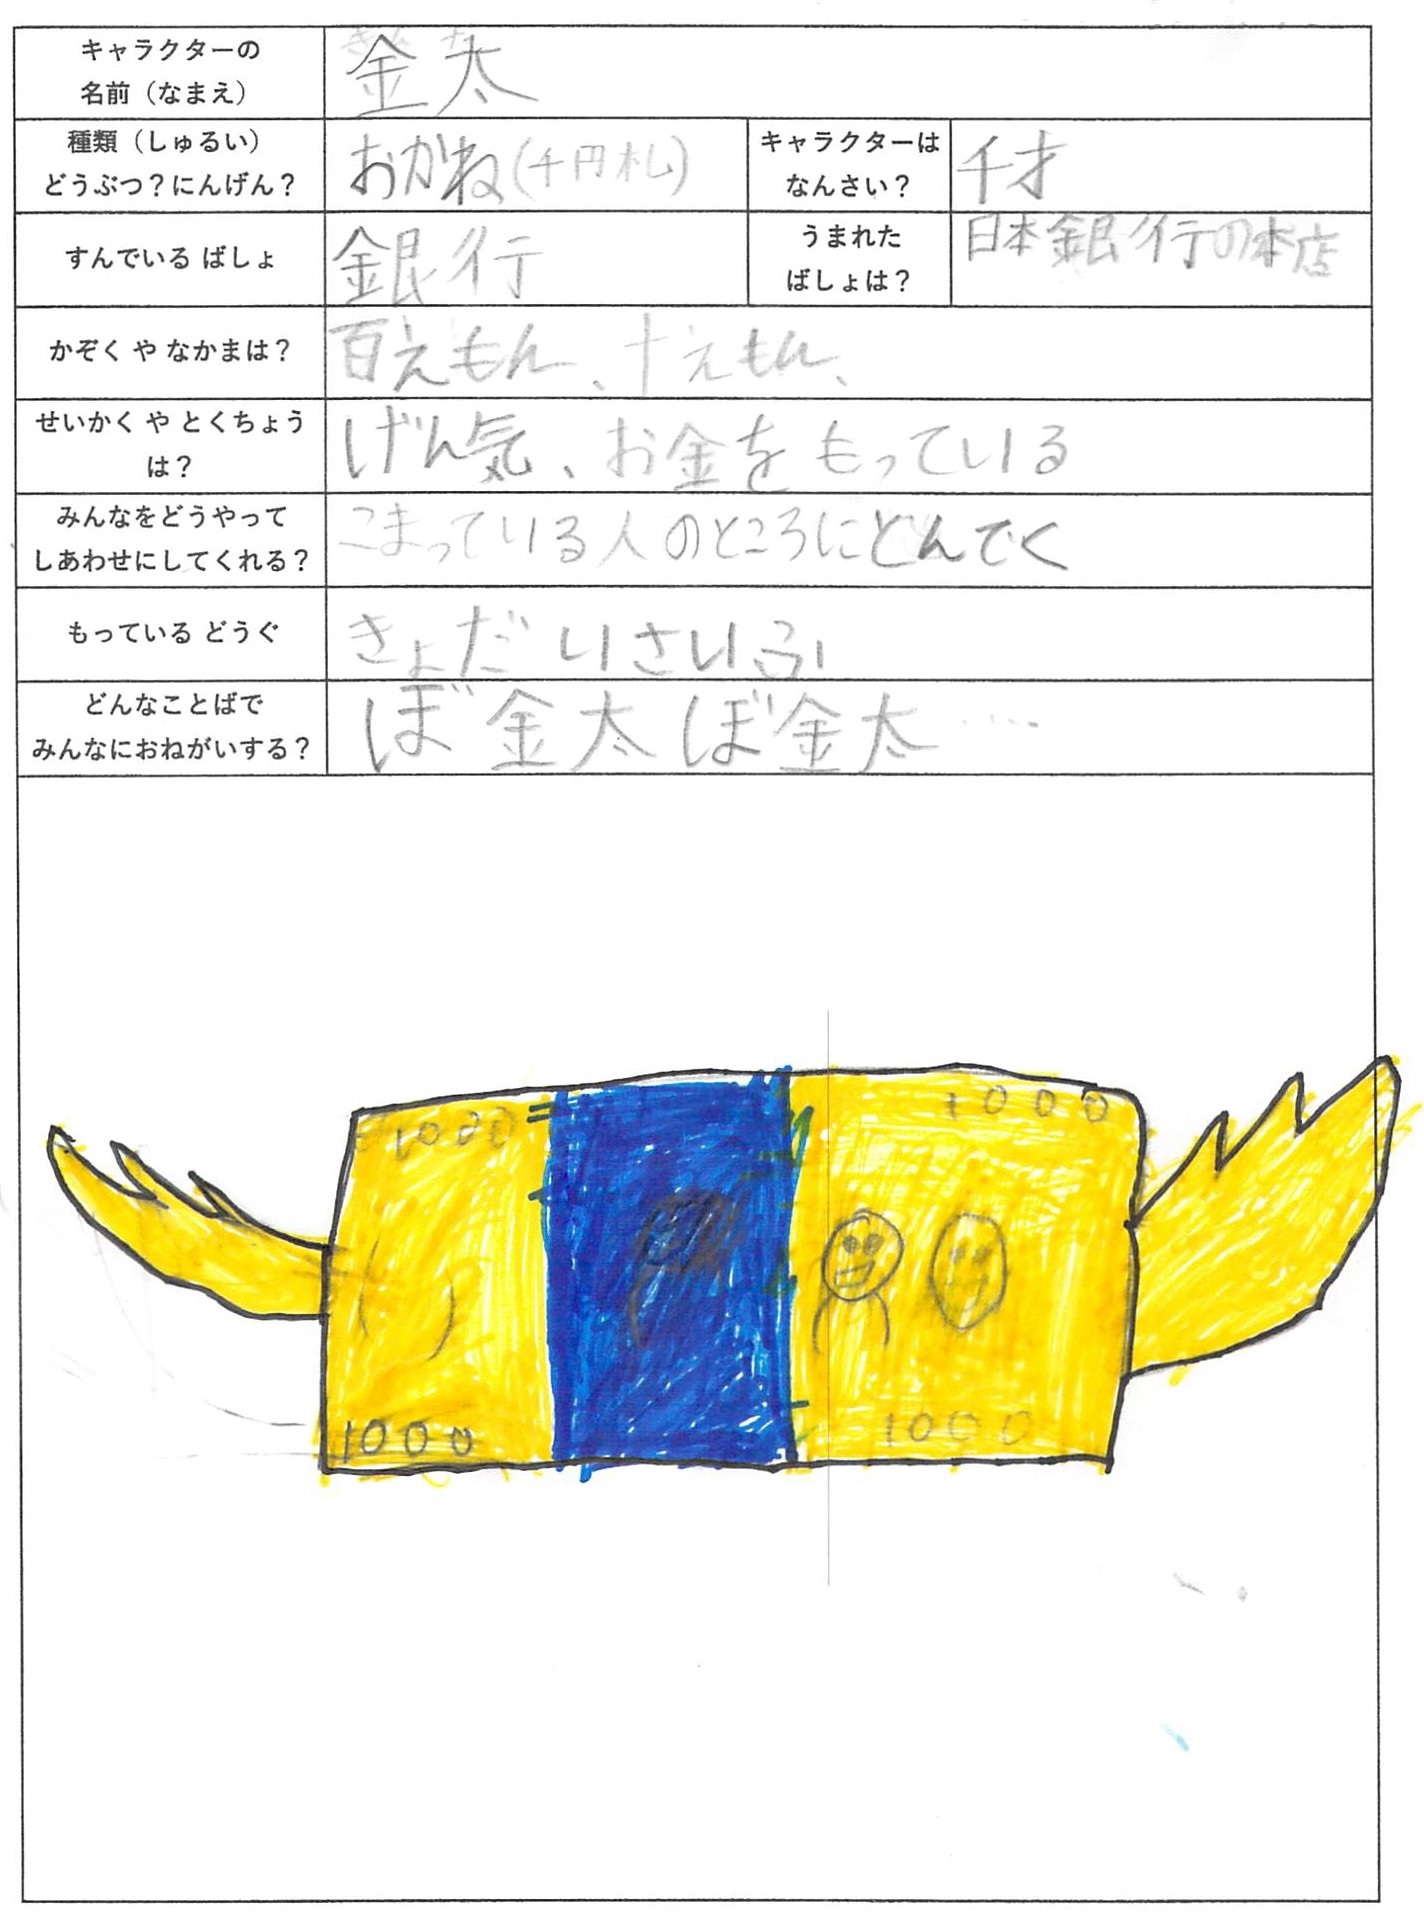 キャラクターの
名前（なまえ）
きん た
金太
種類（しゅるい）
どうぶつ？にんげん？
おかね(千円札)
キャラクターは
なんさい？
千才
すんでいる ばしょ
銀行
うまれた
ばしょは？
日本銀行の本店
かぞく や なかまは？
百えもん、十えもん、
せいかく や とくちょう
は？
げん気、お金をもっている
みんなをどうやって
しあわせにしてくれる？
こまっている人のところにとんでく
もっている どうぐ
きょだいさいふ
どんなことばで
みんなにおねがいする？
ぼ金太ぼ金太……
1000
1000
1000
1000